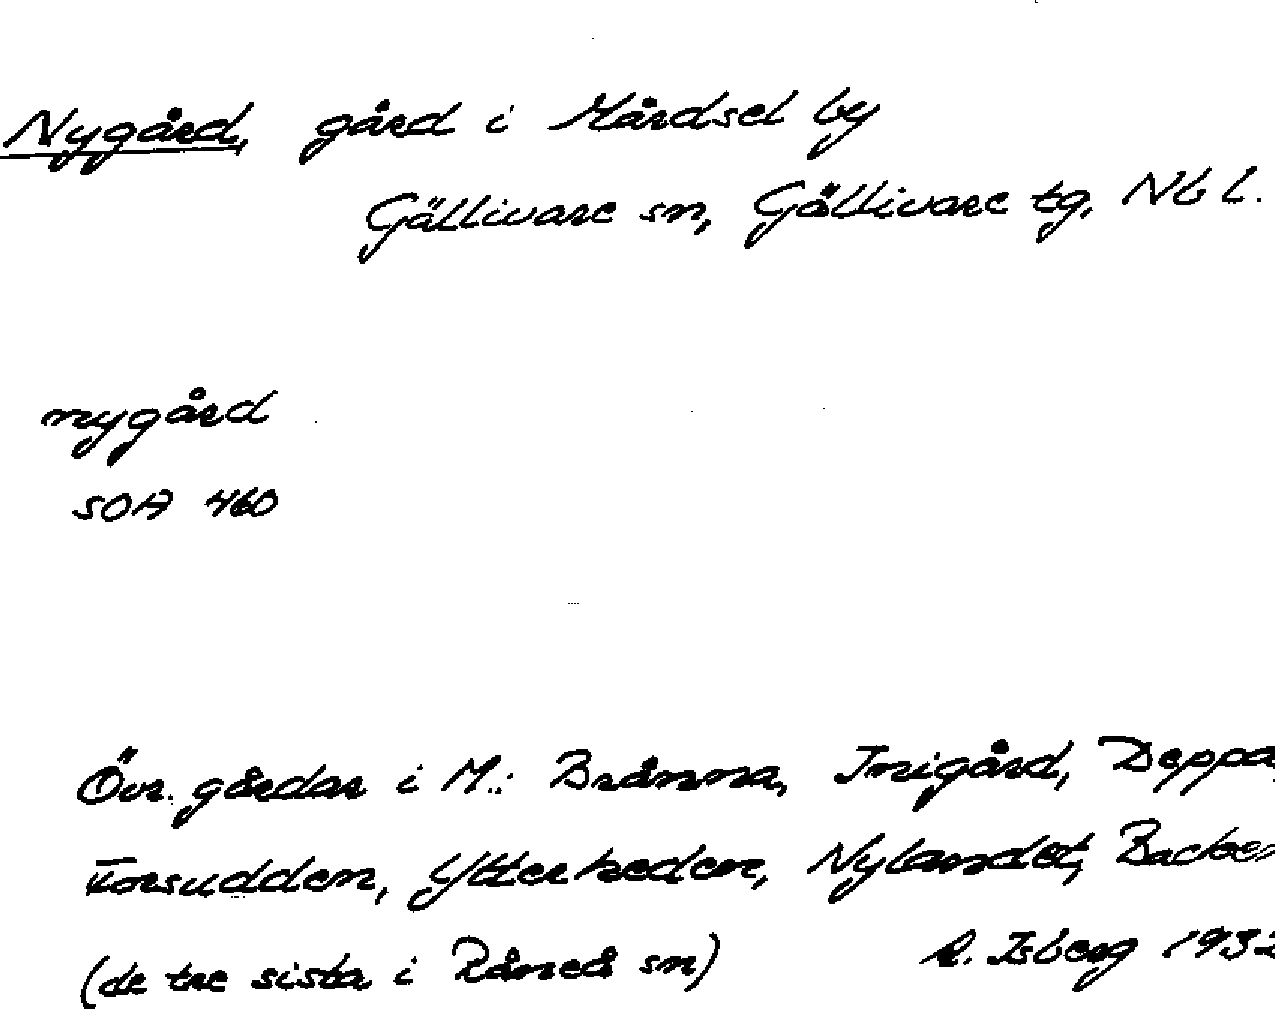 Nygård, gård i Mårdsel by
Gällivare sn, Gällivare tg, Nb l.
nygård
SOA 460
Övr. gårdar i M.: Bränna, Inigård, Deppa
Forsudden, Ytterheden, Nylandet, Backen
(de tre sista i Råneå sn) R. Isberg 1932